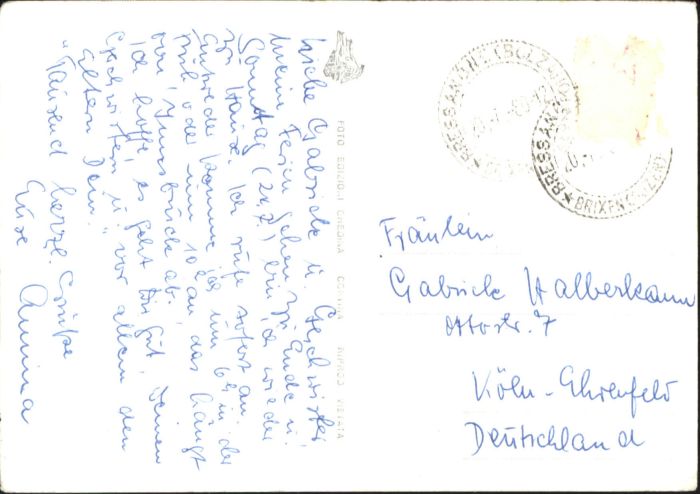 Liebe Gabriele u. Geschwister
meine Ferien gehen zu Ende u.
Sonntag (24.7.) bin ich wieder
zu Hause. Ich rufe sofort an.
Entweder komme ich um 6h in der
Früh oder um 10h an, das hängt
von Innsbruck ab.
Ich hoffe, es geht Dir gut, Deinen
Geschwistern u. vor allem den
Eltern Dein."
"Tausend herzl. Grüße
Eure Annina
FOTO EDIZIONI GHEDINA CORTINA RIPROD. VIETATA
BRESSANONE (BOLZANO)
BRESSANONE
20.
BRIXEN (BOZEN)
Fräulein
Gabriele Halberkann
Ottostr. 7
Köln-Ehrenfeld
Deutschland